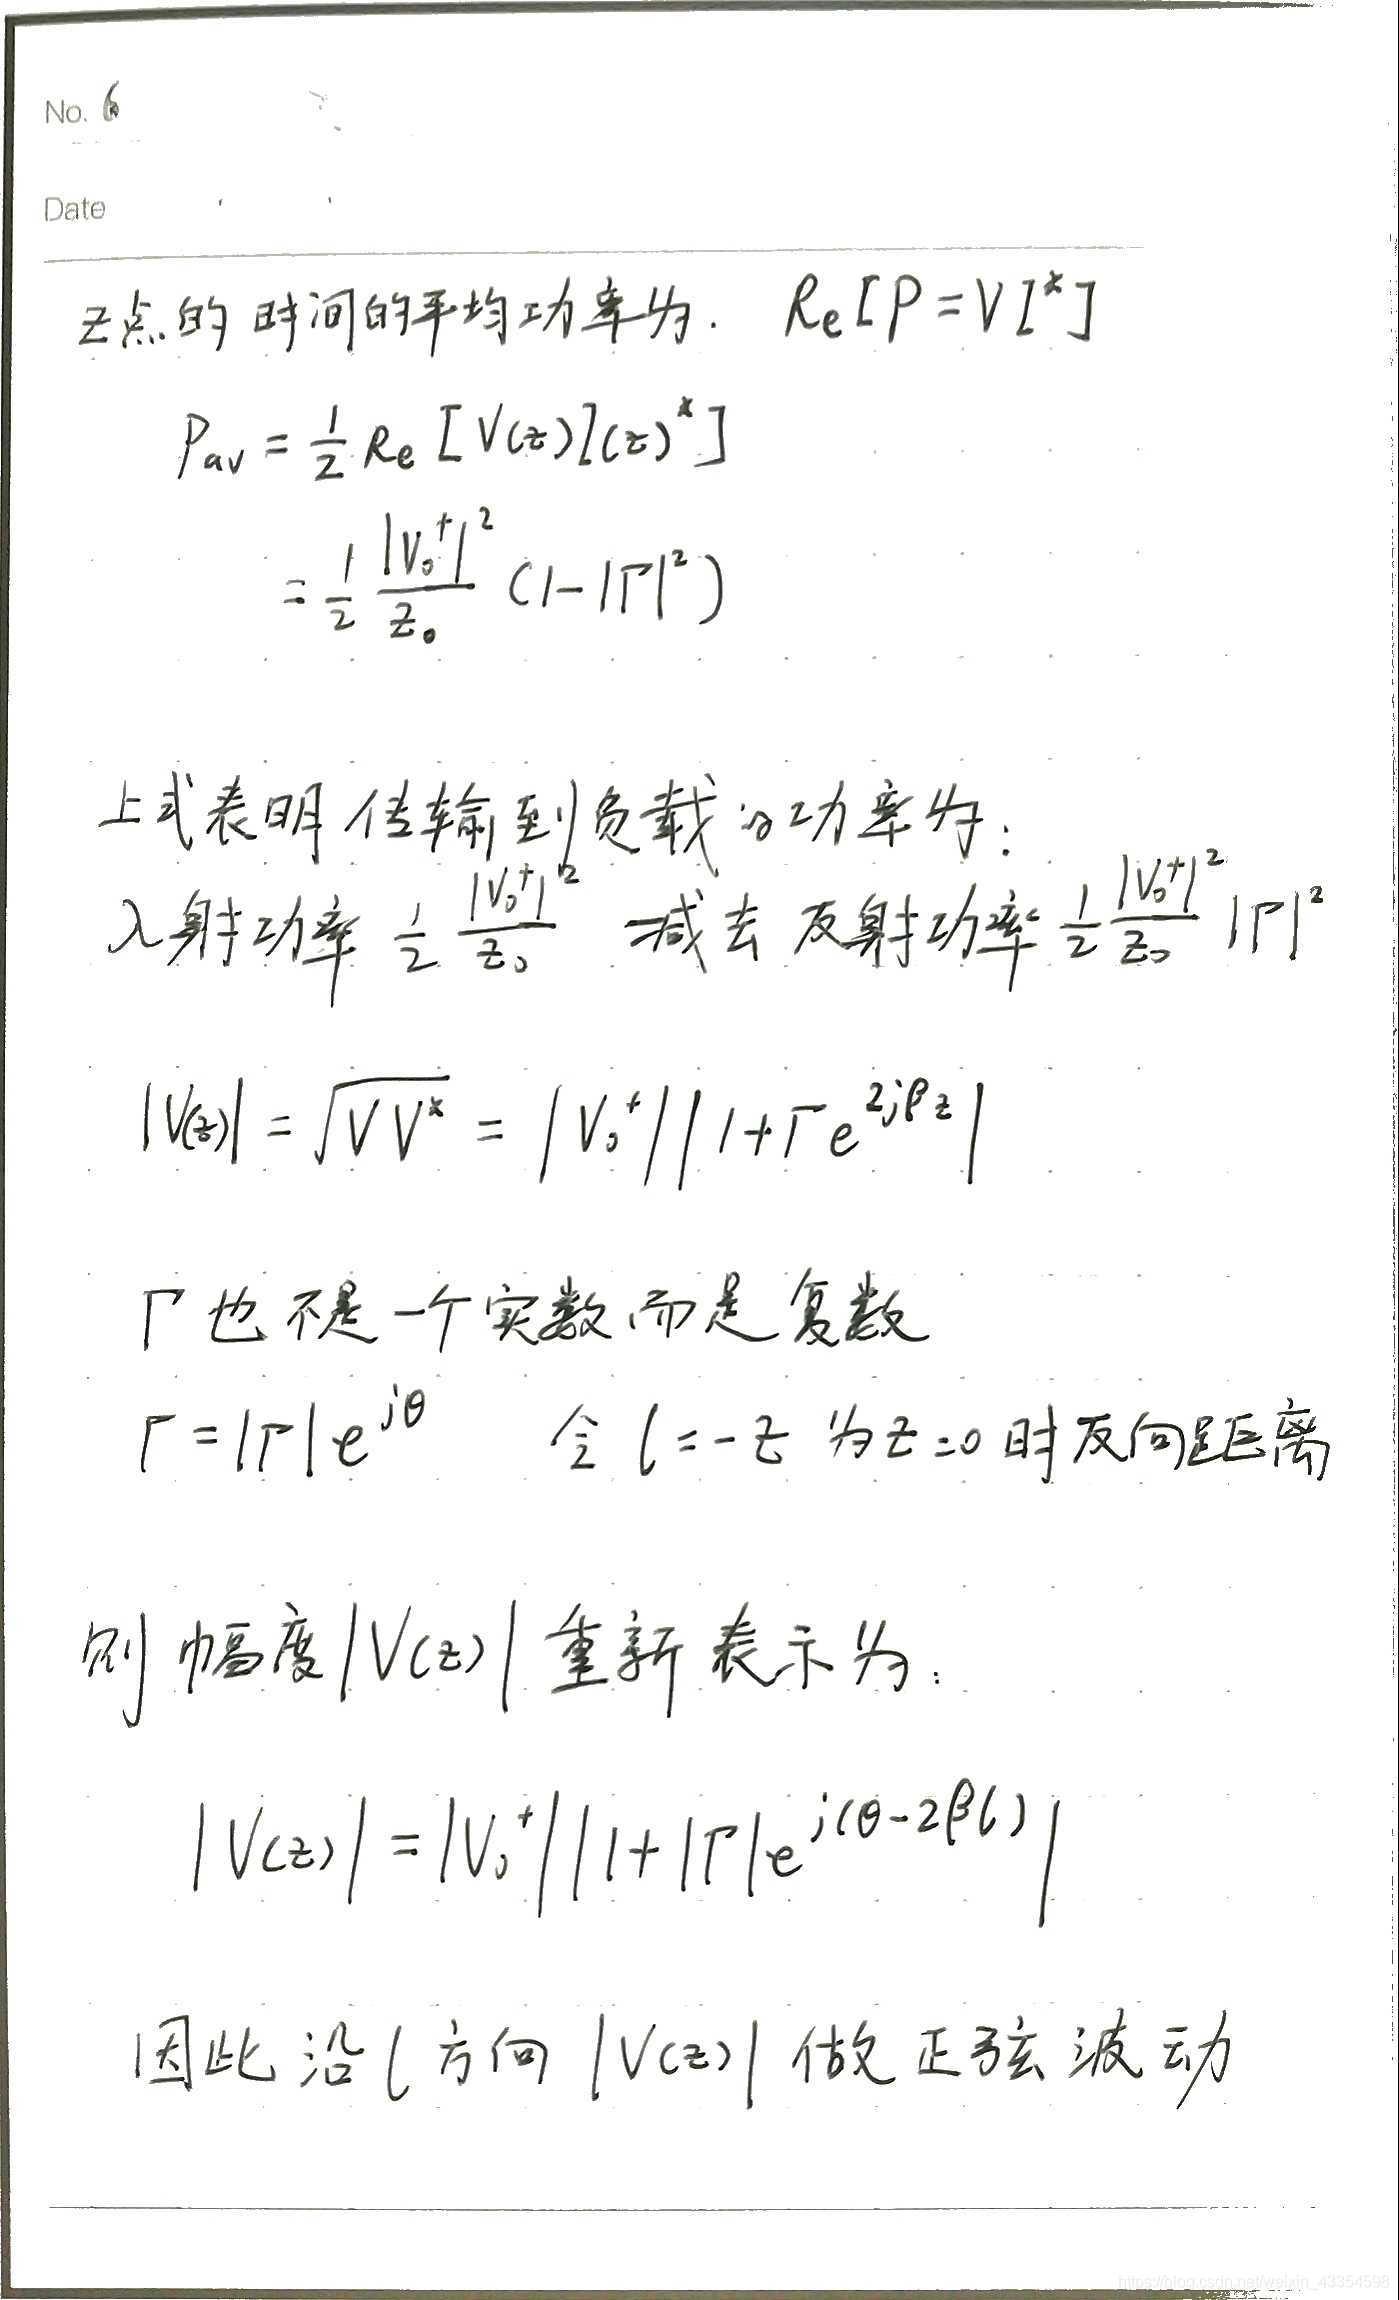 No. 6
Date
z点的时间的平均功率为. Re[P=VI*]
Pav = 1/2 Re [V(z)I(z)*]
= 1/2 |V₀⁺|²/Z₀ (1-|Γ|²)
上式表明传输到负载的功率为:
入射功率 1/2 |V₀⁺|²/Z₀ 减去 反射功率 1/2 |V₀⁺|²/Z₀ |Γ|²
|V(z)| = √VV* = |V₀⁺||1+Γe^{2jβz}|
Γ也不是一个实数而是复数
Γ=|Γ|e^{jθ} 令 l=-z 为z=0时反向距离
则幅度|V(z)|重新表示为:
|V(z)|=|V₀⁺||1+|Γ|e^{j(θ-2βl)}|
因此沿l方向|V(z)|做正弦波动
https://blog.csdn.net/weixin_43354598